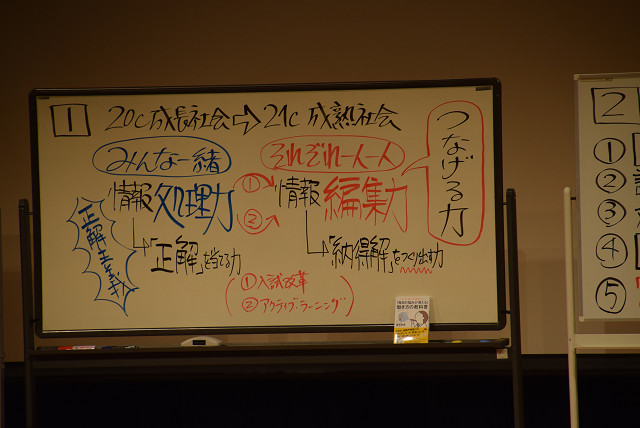 1 20c成長社会⇨21c成熟社会
みんな一緒
それぞれ一人一人
つなげる力
正解主義
情報処理力
① ②
情報編集力
「正解」を当てる力
「納得解」をつくり出す力
①入試改革
②アクティブ・ラーニング
働き方の教科書
2
①
②
③
④
⑤